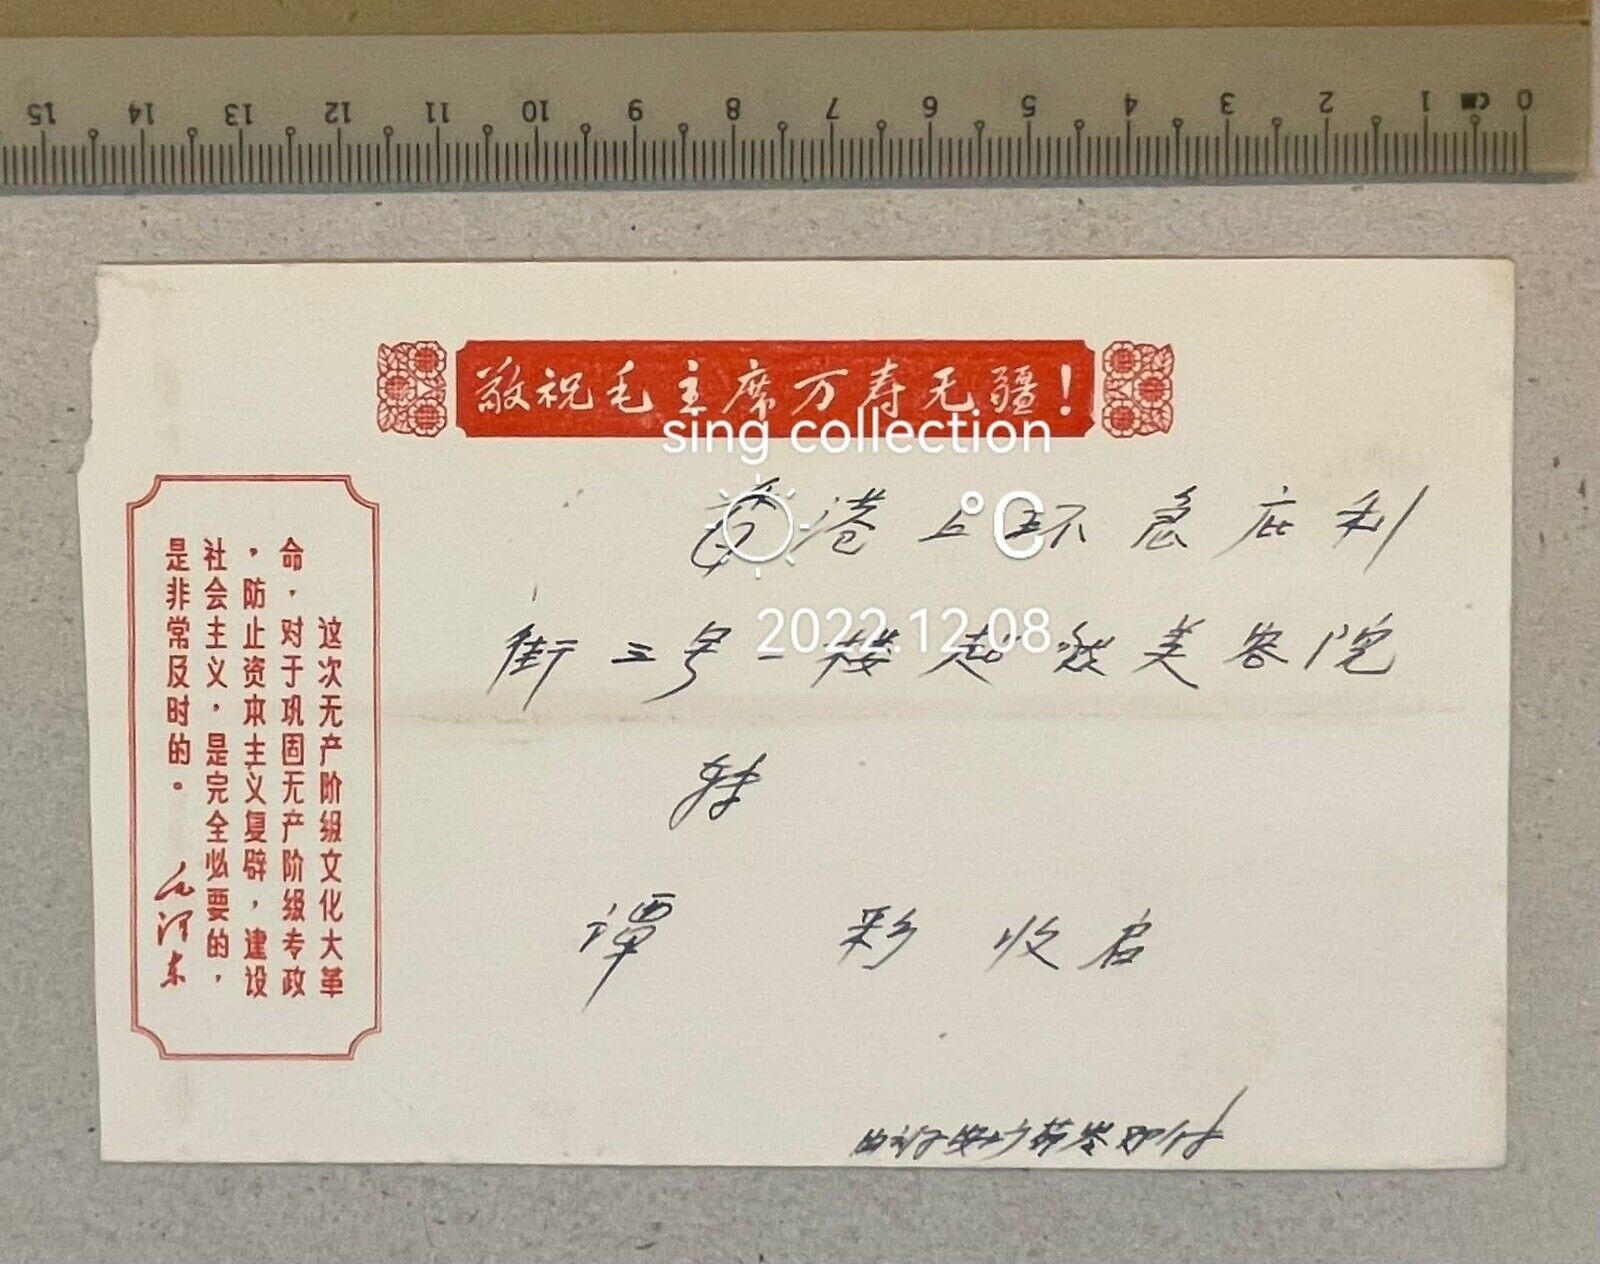 15 14 13 12 11 10 9 8 7 6 5 4 3 2 1 CM 0
敬祝毛主席万寿无疆！
sing collection
°C
2022.12.08
香港上环急庇利
街三号一楼超发美容院
转
谭 彩 收启
这次无产阶级文化大革
命，对于巩固无产阶级专政
，防止资本主义复辟，建设
社会主义，是完全必要的，
是非常及时的。
毛泽东